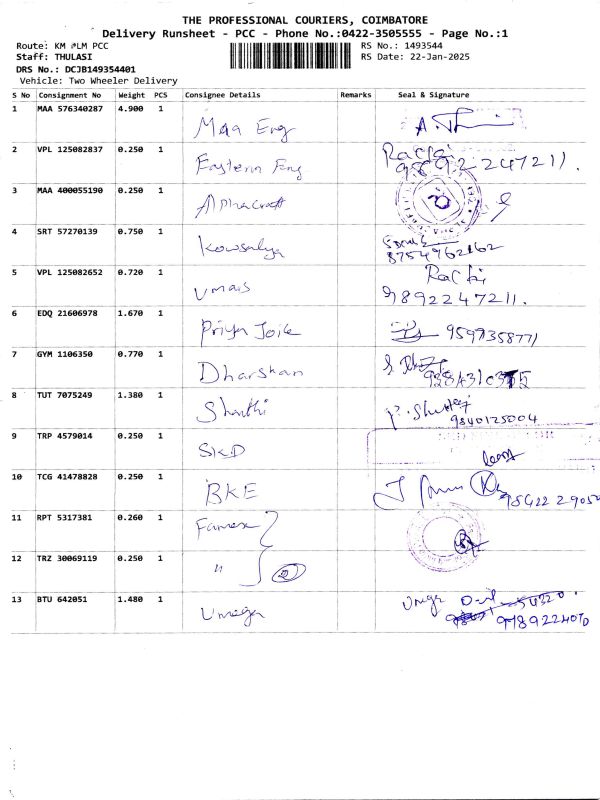 THE PROFESSIONAL COURIERS, COIMBATORE
Delivery Runsheet - PCC - Phone No.:0422-3505555 - Page No.:1
Route: KM PLM PCC
RS No.: 1493544
Staff: THULASI
RS Date: 22-Jan-2025
DRS No.: DCJB149354401
Vehicle: Two Wheeler Delivery
S No Consignment No Weight PCS Consignee Details Remarks Seal & Signature
1 MAA 576340287 4.900 1 Maa Eng
2 VPL 125082837 0.250 1 Eastern Eng
9892247211.
3 MAA 400055190 0.250 1 Alphacraft
4 SRT 57270139 0.750 1 Kowsalya
8754962162
5 VPL 125082652 0.720 1 Umais
9892247211.
6 EDQ 21606978 1.670 1 Priya Joice 9597358771
7 GYM 1106350 0.770 1 Dharshan
8 TUT 7075249 1.380 1 Shanthi
9840125004
9 TRP 4579014 0.250 1 SKD
10 TCG 41478828 0.250 1 BKE
11 RPT 5317381 0.260 1
12 TRZ 30069119 0.250 1 "
13 BTU 642051 1.480 1 Umega